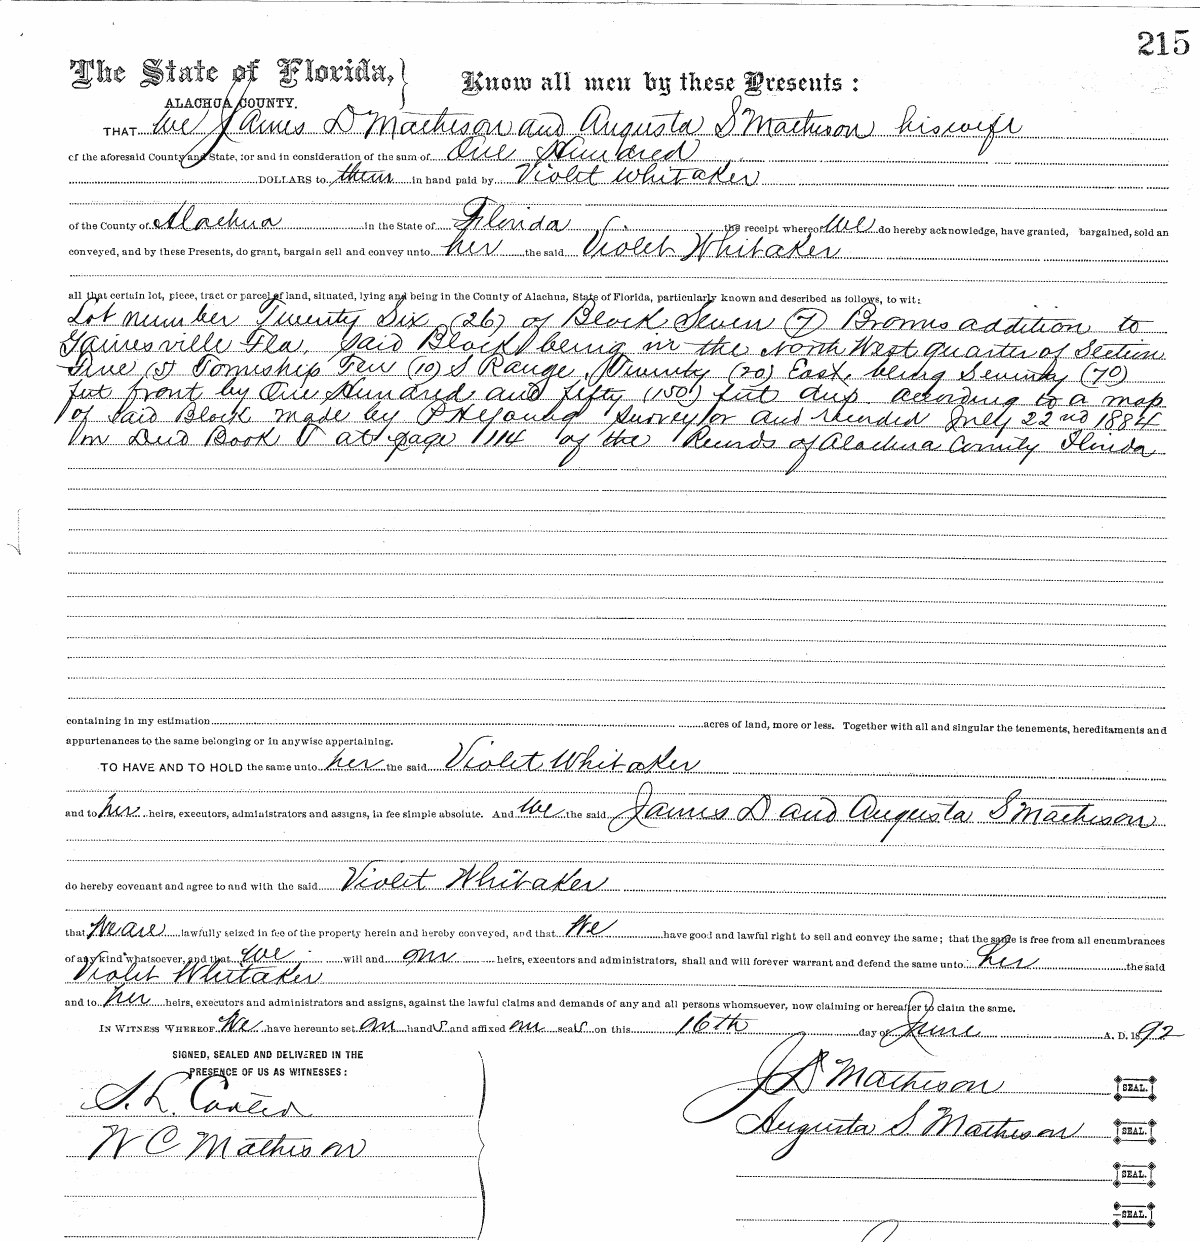 215
The State of Florida,
Know all men by these Presents:
ALACHUA COUNTY.
THAT we James D Matheson and Augusta S Matheson his wife
of the aforesaid County and State, for and in consideration of the sum of One Hundred
DOLLARS to them in hand paid by Violet Whitaker
of the County of Alachua in the State of Florida the receipt whereof we do hereby acknowledge, have granted, bargained, sold an
conveyed, and by these Presents, do grant, bargain sell and convey unto her the said Violet Whitaker
all that certain lot, piece, tract or parcel of land, situated, lying and being in the County of Alachua, State of Florida, particularly known and described as follows, to wit:
Lot number Twenty Six (26) of Block Seven (7) Browns addition to
Gainesville Fla. Said Block being in the North West quarter of Section
Five (5) Township Ten (10) S Range Twenty (20) East. being Seventy (70)
feet front by One Hundred and fifty (150) feet deep. according to a map
of Said Block made by P H Young Surveyor and recorded July 22nd 1884
in Deed Book O at page 1114 of the Records of Alachua County Florida
containing in my estimation acres of land, more or less. Together with all and singular the tenements, hereditaments and
appurtenances to the same belonging or in anywise appertaining.
TO HAVE AND TO HOLD the same unto her the said Violet Whitaker
and to her heirs, executors, administrators and assigns, in fee simple absolute. And we the said James D and Augusta S Matheson
do hereby covenant and agree to and with the said Violet Whitaker
that We are lawfully seized in fee of the property herein and hereby conveyed, and that We have good and lawful right to sell and convey the same; that the same is free from all encumbrances
of any kind whatsoever, and that we will and our heirs, executors and administrators, shall and will forever warrant and defend the same unto her the said
Violet Whitaker
and to her heirs, executors and administrators and assigns, against the lawful claims and demands of any and all persons whomsoever, now claiming or hereafter to claim the same.
IN WITNESS WHEREOF We have hereunto set our hands and affixed our seals on this 16th day of June A. D. 1892
SIGNED, SEALED AND DELIVERED IN THE
PRESENCE OF US AS WITNESSES:
J D Matheson SEAL.
S. L. Carter
Augusta S. Matheson SEAL.
W C Matheson
SEAL.
SEAL.